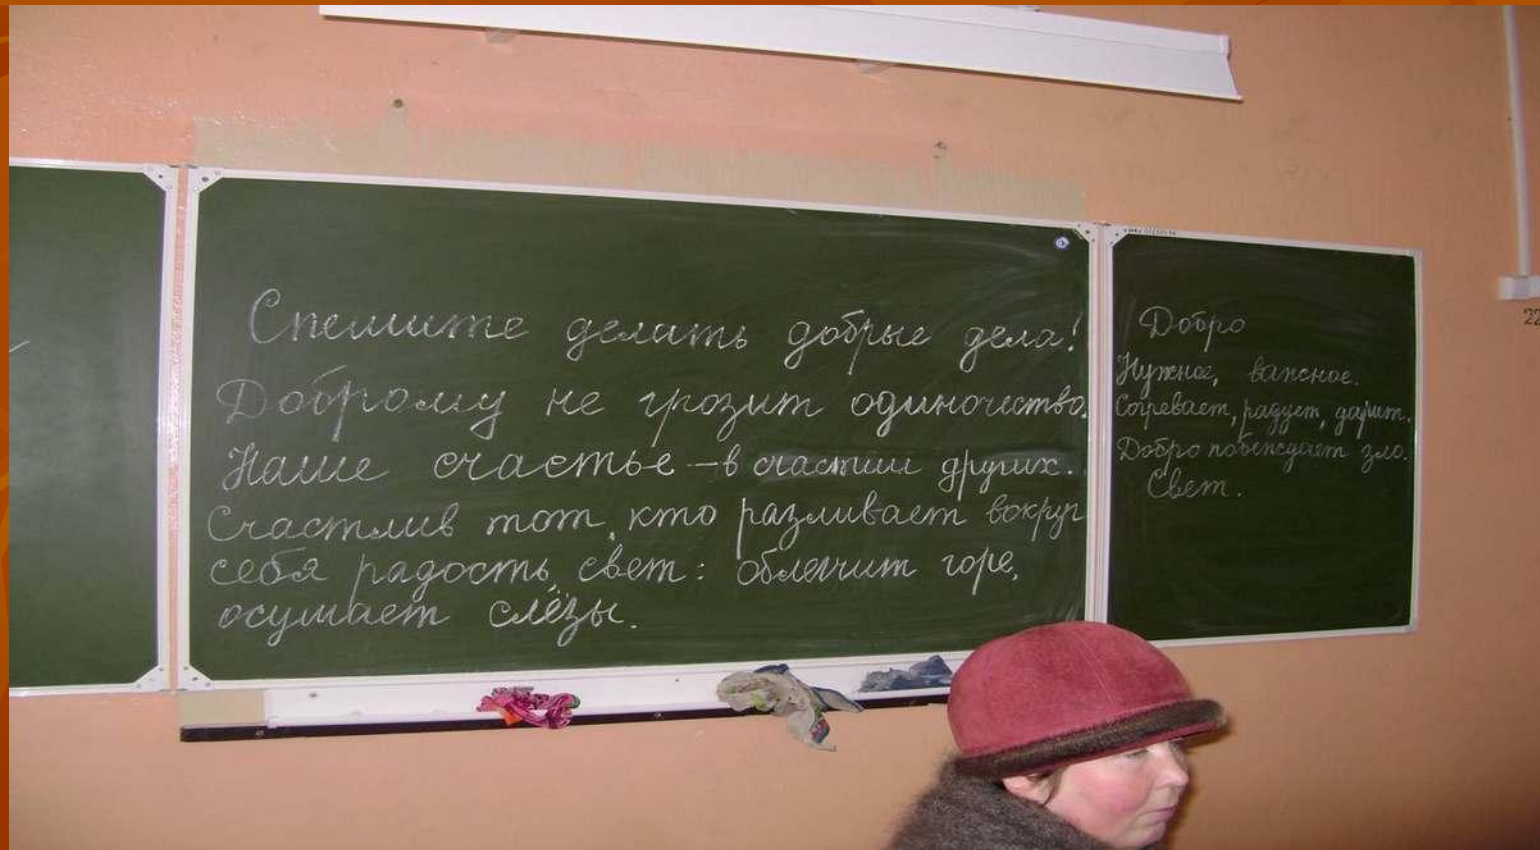 Спешите делать добрые дела!
Доброму не грозит одиночество.
Наше счастье – в счастии других.
Счастлив тот, кто разливает вокруг
себя радость, свет: облегчит горе,
осушает слёзы.
Добро
Нужное, важное.
Согревает, радует, дарит.
Добро побеждает зло.
Свет.
22